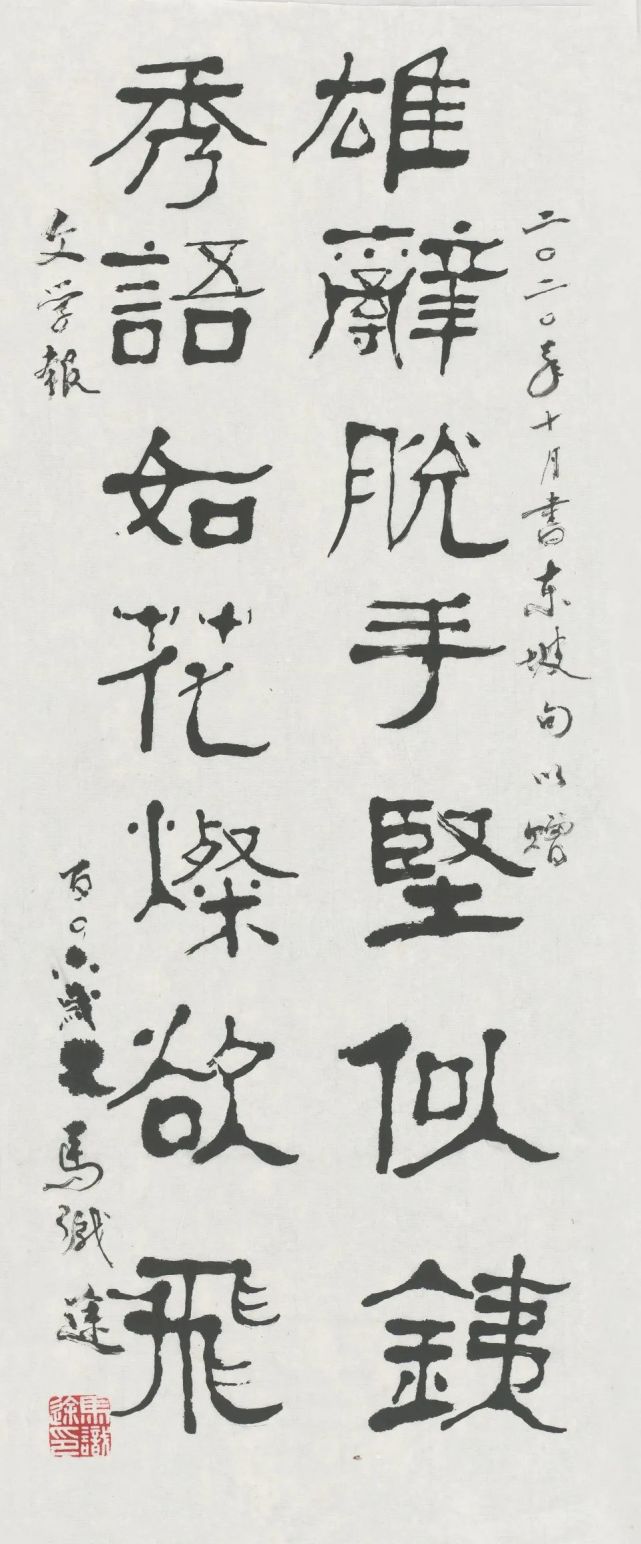 二〇二〇年十月書东坡句以赠
雄辭脫手堅似銕
秀語如花燦欲飛
文学报
百〇六歲叟馬識途
馬識途印